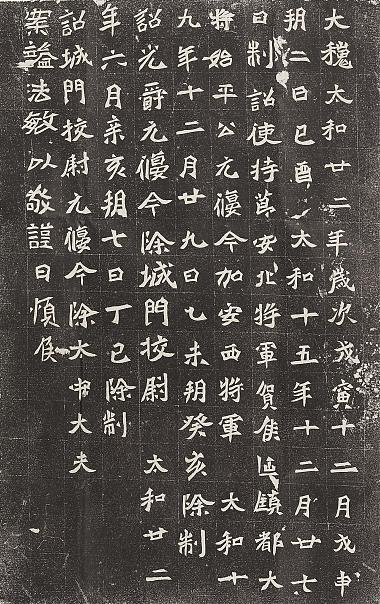 大魏太和廿二年歲次戊寅十二月戊申
朔二日己酉太和十五年十二月廿七
日制詔使持節安北將軍賀侯延鎮都大
將始平公元偃今加安西將軍 太和十
九年十二月廿九日乙未朔癸亥除制
詔光爵元偃今除城門挍尉 太和廿二
年六月辛亥朔七日丁巳除制
詔城門挍尉元偃今除太中大夫
案謚法敏以敬謹曰順侯